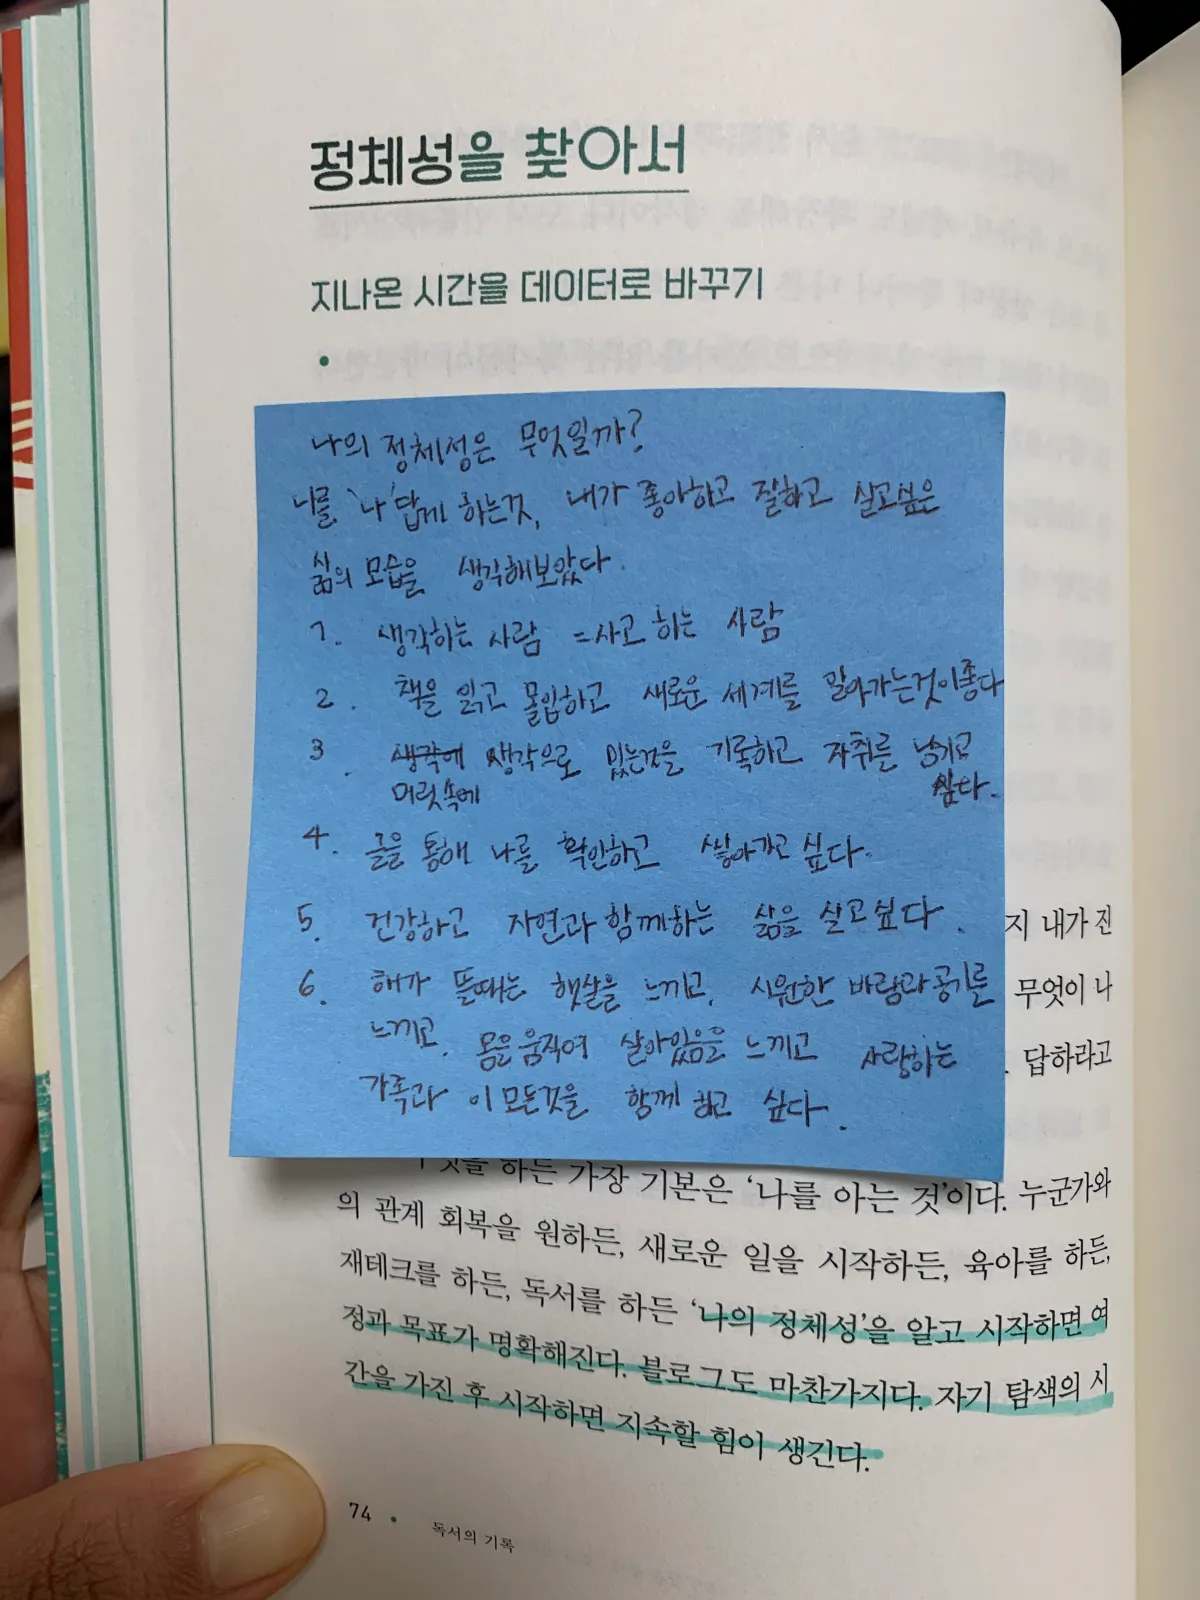 정체성을 찾아서
지나온 시간을 데이터로 바꾸기
나의 정체성은 무엇일까?
나를 '나'답게 하는것, 내가 좋아하고 잘하고 살고싶은
삶의 모습을 생각해보았다.
1. 생각하는 사람 = 사고 하는 사람
2. 책을 읽고 몰입하고 새로운 세계를 알아가는것이좋다
3. 생각에 생각으로 있는것을 기록하고 자취를 남기고
머릿속에 싶다.
4. 글을 통해 나를 확인하고 싶다.
5. 건강하고 자연과 함께하는 삶을 살고싶다.
6. 해가 뜰때는 햇살을 느끼고, 시원한 바람과 공기를
느끼고, 몸을 움직여 살아있음을 느끼고 사랑하는
가족과 이 모든것을 함께 하고 싶다.
지 내가 진
무엇이 나
답하라고
하든 가장 기본은 '나를 아는 것'이다. 누군가와
의 관계 회복을 원하든, 새로운 일을 시작하든, 육아를 하든,
재테크를 하든, 독서를 하든 '나의 정체성'을 알고 시작하면 여
정과 목표가 명확해진다. 블로그도 마찬가지다. 자기 탐색의 시
간을 가진 후 시작하면 지속할 힘이 생긴다.
74 • 독서의 기록